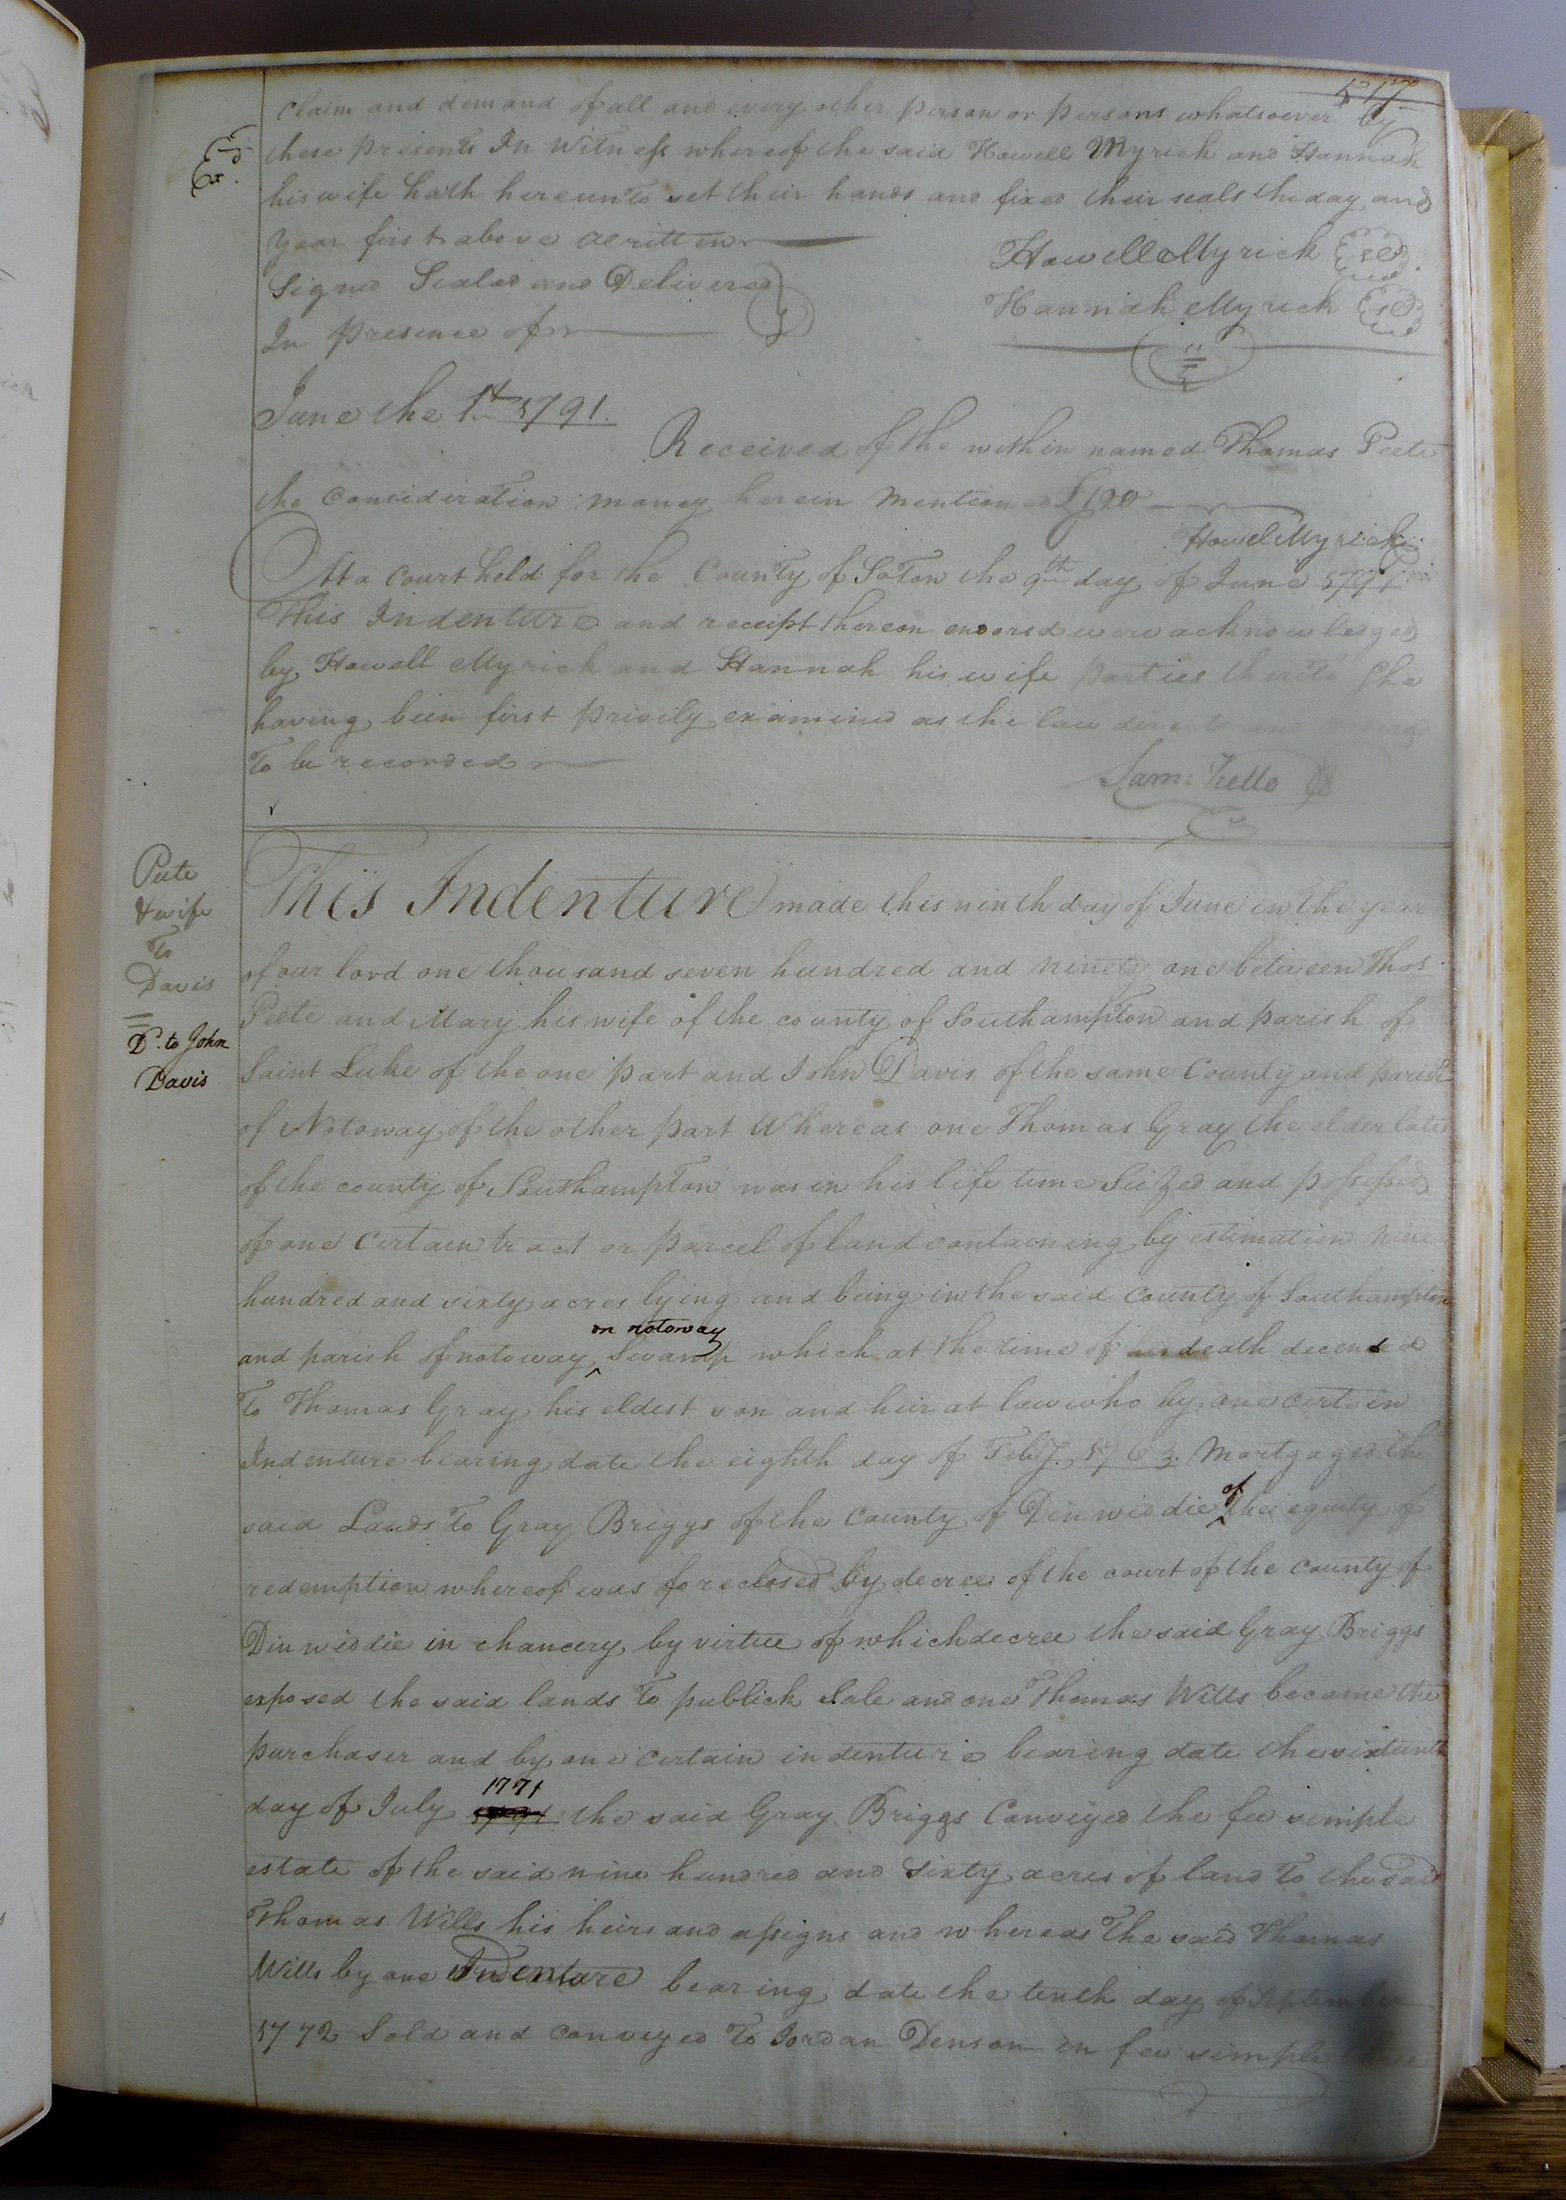 517
Claim and demand of all and every other person or persons whatsoever by
these presents In Witness whereof the said Howell Myrick and Hannah
Ex.d
his wife hath hereunto set their hands and fixed their seals the day and
Year first above Written
Howell Myrick
Signed Sealed and Delivered
Hannah Myrick
In presence of
June the 1st 1791.
Received of the within named Thomas Peete
the Consideration money herein Mentioned £190
Howel Myrick
At a Court held for the County of Soton the 9th day of June 1791
This Indenture and receipt thereon endorsed were acknowledged
by Howell Myrick and Hannah his wife parties thereto She
having been first privily examined as the law directs and
To be recorded
Sam: Kello
Peete
& wife
To
Davis
D. to John
Davis
This Indenture made this ninth day of June in the year
of our lord one thousand seven hundred and ninety one between Thos
Peete and Mary his wife of the county of Southampton and parish of
Saint Luke of the one part and John Davis of the same County and parish
of Notoway of the other part Whereas one Thomas Gray the elder late
of the county of Southampton was in his life time Seized and possessed
of one Certain tract or parcel of land containing by estimation Nine
hundred and sixty acres lying and being in the said County of Southampton
on notoway
and parish of notoway Swamp which at the time of his death decended
To Thomas Gray his eldest son and heir at law who by one certain
Indenture bearing date the eighth day of Feby. 1763. Mortgaged the
said Lands To Gray Briggs of the County of Dinwiddie of the equity of
redemption whereof was foreclosed by decree of the court of the County of
Dinwiddie in chancery by virtue of which decree the said Gray Briggs
exposed the said lands To publick Sale and one Thomas Wills became the
purchaser and by one certain indenture bearing date the sixteenth
1771
day of July the said Gray Briggs Conveyed the fee simple
estate of the said nine hundred and Sixty acres of land To the said
Thomas Wills his heirs and assigns and whereas The said Thomas
Wills by one Indenture bearing date the tenth day of September
1772 Sold and Conveyed To Jordan Denson in fee simple